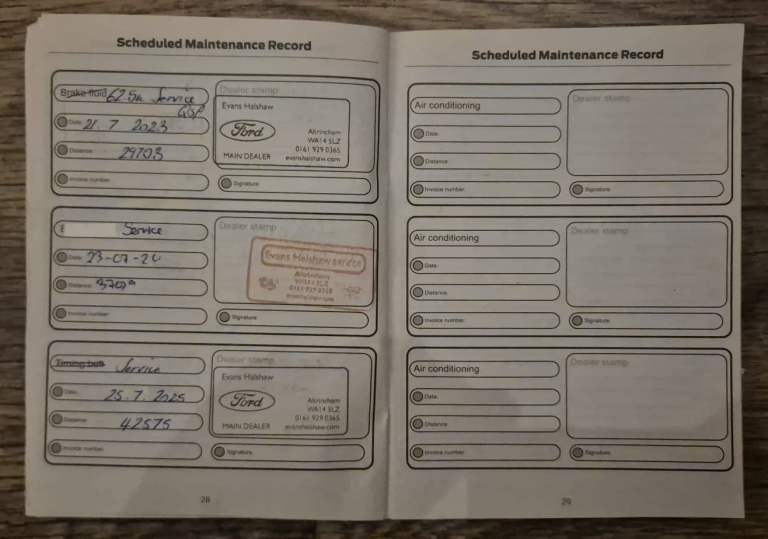 Scheduled Maintenance Record
Brake fluid 62.5k Service
Date 21. 7 2023
Distance 29703
Invoice number
Dealer stamp
Evans Halshaw
Ford
Altrincham
WA14 5LZ
0161 929 0365
MAIN DEALER evanshalshaw.com
Signature
Service
Date 23-07-24
Distance
Invoice number
Dealer stamp
Evans Halshaw service
Altrincham
Signature
Timing belt Service
Date 25.7.2025
Distance 42575
Invoice number
Dealer stamp
Evans Halshaw
Ford
Altrincham
WA14 5LZ
0161 929 0365
MAIN DEALER evanshalshaw.com
Signature
28
Scheduled Maintenance Record
Air conditioning
Date
Distance
Invoice number
Dealer stamp
Signature
Air conditioning
Date
Distance
Invoice number
Dealer stamp
Signature
Air conditioning
Date
Distance
Invoice number
Dealer stamp
Signature
29